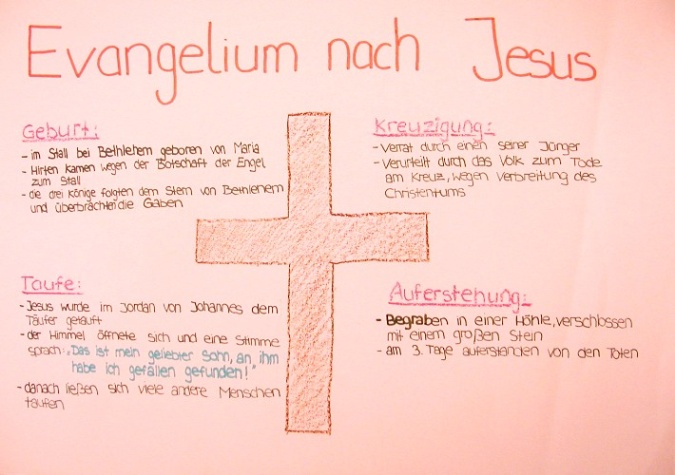 Evangelium nach Jesus
Geburt:
- im Stall bei Bethlehem geboren von Maria
- Hirten kamen wegen der Botschaft der Engel
zum Stall
- die drei Könige folgten dem Stern von Bethlehem
und überbrachten die Gaben
Taufe:
- Jesus wurde im Jordan von Johannes dem
Täufer getauft
- der Himmel öffnete sich und eine Stimme
sprach: „Das ist mein geliebter Sohn, an ihm
habe ich gefallen gefunden!"
- danach ließen sich viele andere Menschen
taufen
Kreuzigung:
- Verrat durch einen seiner Jünger
- Verurteilt durch das Volk zum Tode
am Kreuz, wegen Verbreitung des
Christentums
Auferstehung:
- Begraben in einer Höhle, verschlossen
mit einem großen Stein
- am 3. Tage auferstanden von den Toten